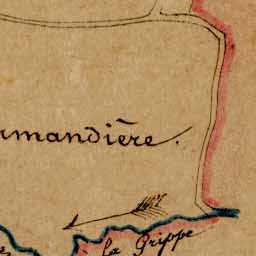 rmandière.
la Grippe